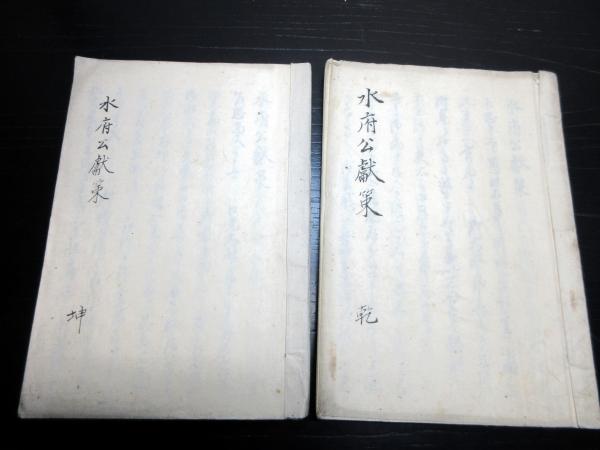 水府公獻策
乾
水府公獻策
坤